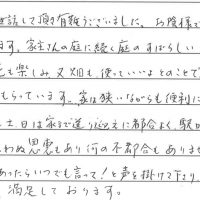 世話して頂き有難うございました。お陰様で
ます。家主さんの庭に続く庭のすばらしい
花も楽しみ又畑も使っていいよとのことで
もらっています。家は狭いながらも便利に
土日は家まで送り迎えに都合よく駅か
わぬ恩恵もあり何の不都合もありませ
あったらいつでも言って!と声を掛けて下さり
満足しております。